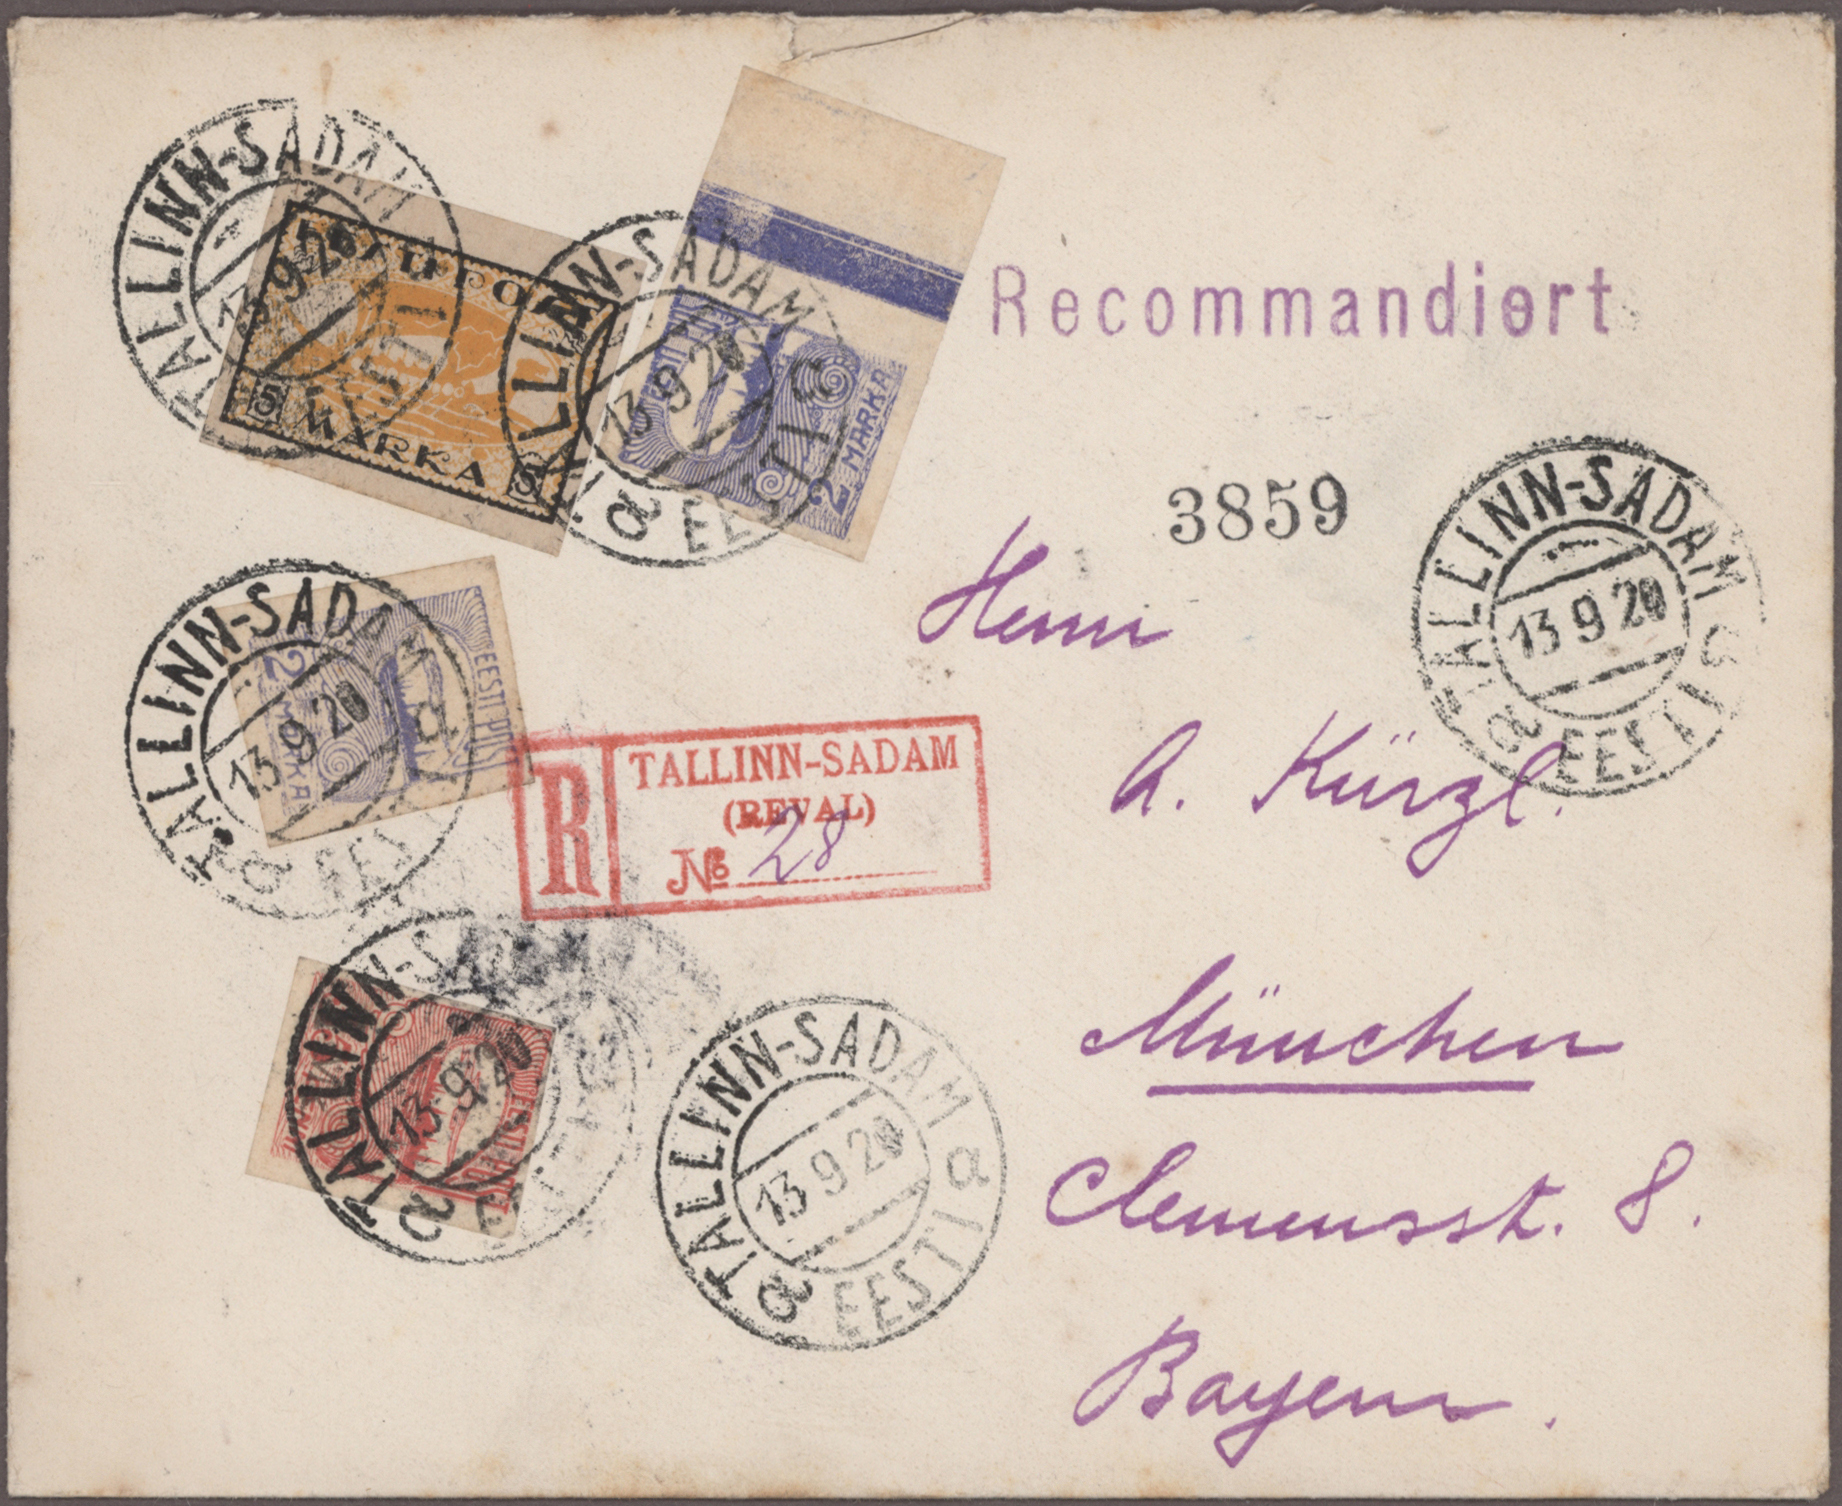 TALLINN-SADAM
EESTI
13 9 20
5 MARKA 5
TALLINN-SADAM
a EESTI a
13 9 20
EESTI POST
2 MARKA
Recommandiert
3859
TALLINN-SADAM
a EESTI a
13 9 20
Herrn
TALLINN-SADAM
a EESTI a
13 9 20
EESTI POST
2 MARKA
R
TALLINN-SADAM
(REVAL)
№ 28
A. Kürzl.
TALLINN-SADAM
a
13 9 20
EESTI POST
TALLINN-SADAM
a EESTI a
13 9 20
München
Clemensst. 8.
Bayern.